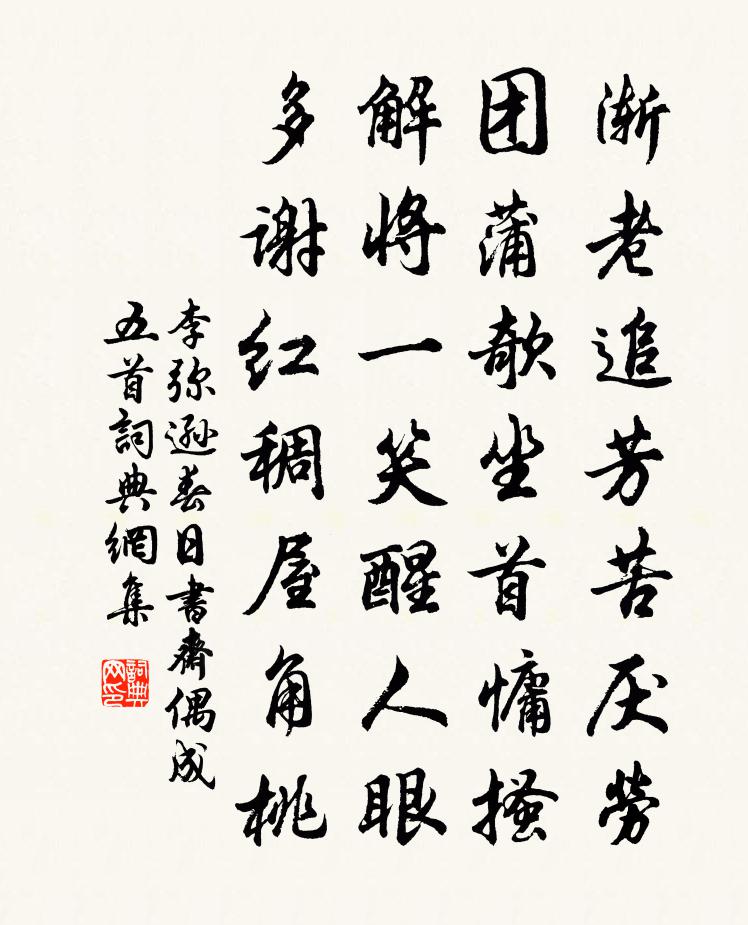 渐老追芳苦厌劳
团蒲欹坐首慵搔
解将一笑醒人眼
多谢红稠屋角桃
李弥逊春日书斋偶成
五首詞典網集
詞典
网印